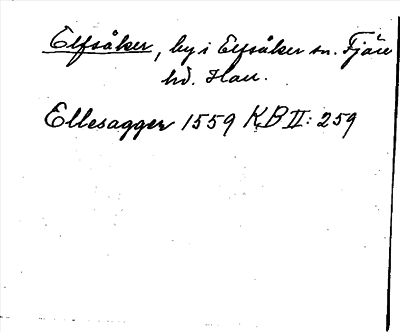 Elfsåker, by i Elfsåker sn. Fjäre
hd. Hall.
Ellesagger 1559 KB II: 259